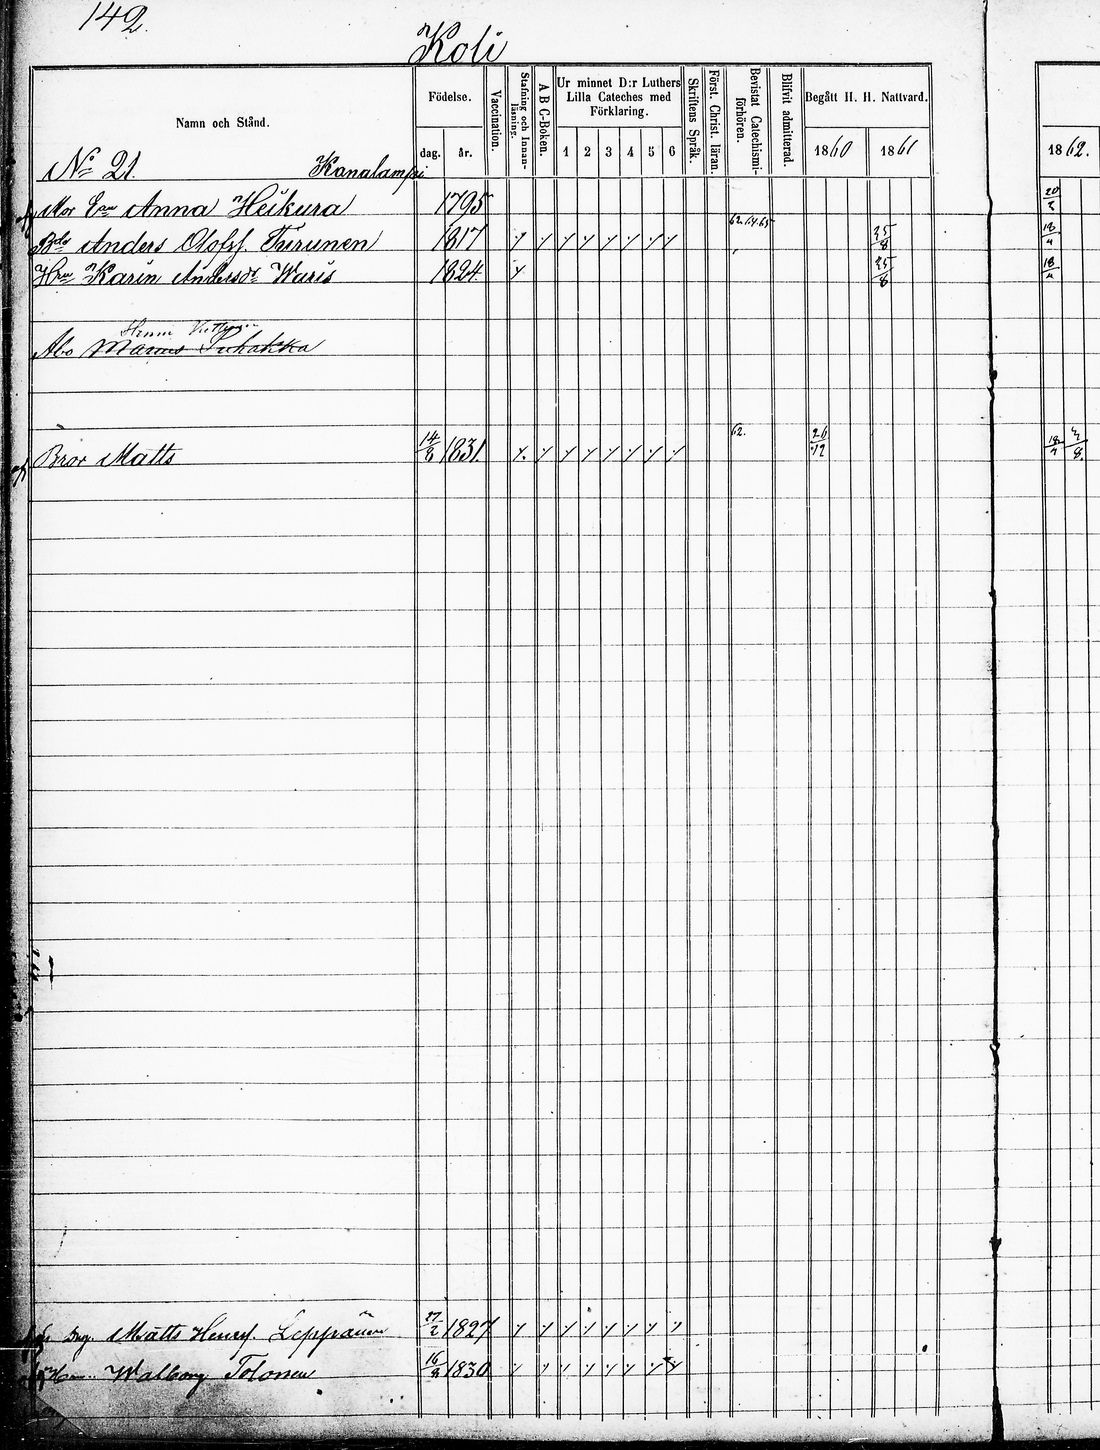 142.
Koli
Namn och Stånd.
Födelse.
dag. år.
Vaccination.
Stafning och Innanläsning.
A B C-Boken.
Ur minnet D:r Luthers Lilla Cateches med Förklaring.
1 2 3 4 5 6
Skriftens Språk.
Först. Christ. läran.
Bevistat Catechismiförhören.
Blifvit admitterad.
Begått H. H. Nattvard.
1860 1861 1862.
No 21. Kanalampi
Mor Anna Heikura 1795 20/2
Anders Olofsf Turunen 1817 62.64.65 25/8 18/4
Karin Andersdr Waris 1824 25/8 18/4
Henr
Abo Puhakka
Bror Matts 14/8 1831. 62. 26/12
Matts Henrsf. Leppänen 27/2 1827
Walborg Tolonen 1830